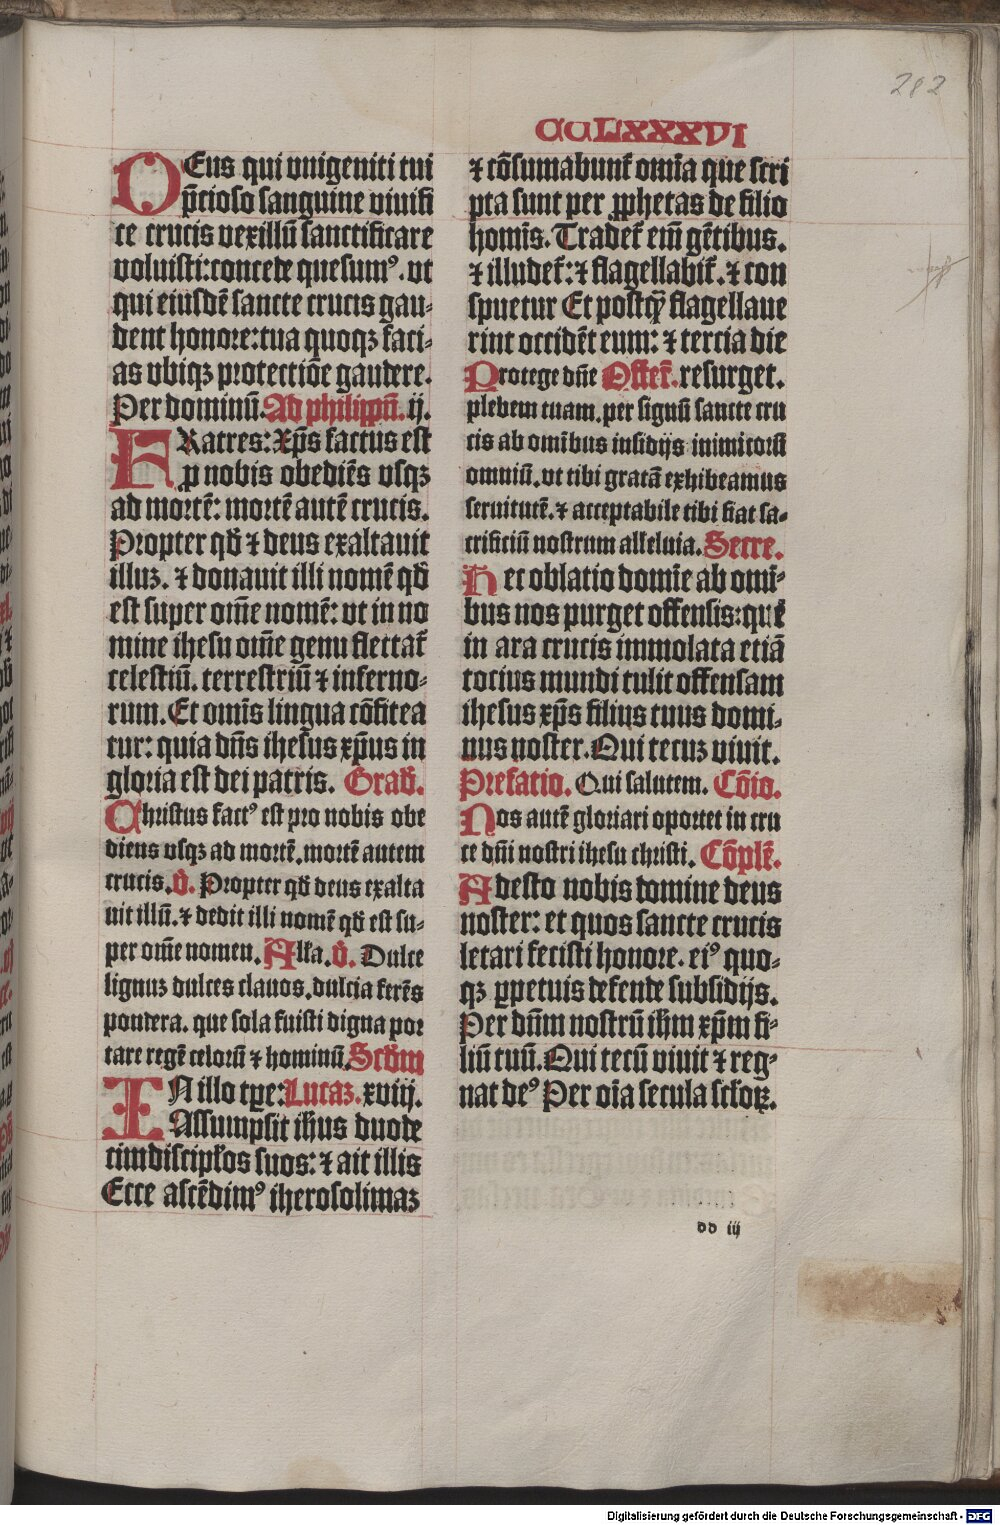 282
CCLXXXVI
DEus qui vnigeniti tui
p̄cioso sanguine viuifi
ce crucis vexillū sanctificare
voluisti: concede quesumꝰ. vt
qui eiusdē sancte crucis gau⸗
dent honore: tua quoqꝫ faci⸗
as vbiqꝫ protectiōe gaudere.
Per dominū. Ad philippn̄. ij.
FRatres: Xp̄s factus est
ꝓ nobis obediēs vsqꝫ
ad mortē: mortē autē crucis.
Propter qđ ⁊ deus exaltauit
illuꝫ. ⁊ donauit illi nomē qđ
est super om̄e nomē: vt in no
mine ihesu om̄e genu flectat᷑
celestiū. terrestriū ⁊ inferno⸗
rum. Et om̄is lingua cōfitea
tur: quia dn̄s ihesus xp̄us in
gloria est dei patris. Grad̄.
Christus factꝰ est pro nobis obe
diens vsqꝫ ad mortē. mortē autem
crucis. v̄. Propter qđ deus exalta
uit illū. ⁊ dedit illi nomē qđ est su⸗
per om̄e nomen. Alła. v̄. Dulce
lignuꝫ dulces clauos. dulcia ferēs
pondera. que sola fuisti digna por
tare regē celorū ⁊ hominū. Scd̄m
IN illo tꝑe: Lucaꝫ. xviij.
Assumpsit ih̄us duode
cim discipłos suos: ⁊ ait illis
Ecce ascēdimꝰ iherosolimaꝫ
⁊ cōsumabunt᷑ om̄ia que scri
pta sunt per ꝓphetas de filio
homīs. Tradet᷑ em̄ gētibus.
⁊ illudet᷑: ⁊ flagellabit᷑. ⁊ con
spuetur Et postꝙ̄ flagellaue
rint occidēt eum: ⁊ tercia die
Protege dn̄e Offert̄. resurget.
plebem tuam. per signū sancte cru
cis ab omībus insidijs inimicorū
omniū. vt tibi gratā exhibeamus
seruitutē. ⁊ acceptabile tibi fiat sa⸗
crificiū nostrum alleluia. Secre.
Hec oblatio domīe ab omī⸗
bus nos purget offensis: quē
in ara crucis immolata etiā
tocius mundi tulit offensam
ihesus xp̄s filius tuus domi⸗
nus noster. Qui tecuꝫ viuit.
Prefatio. Qui salutem. Cōio.
Nos autē gloriari oportet in cru
ce dn̄i nostri ihesu christi. Cōplē.
Adesto nobis domine deus
noster: et quos sancte crucis
letari fecisti honore. eiꝰ quo⸗
qꝫ ꝑpetuis defende subsidijs.
Per dn̄m nostrū ih̄m xp̄m fi⸗
liū tuū. Qui tecū viuit ⁊ reg⸗
nat deꝰ Per oīa secula scłoꝝ.
dd iij
Digitalisierung gefördert durch die Deutsche Forschungsgemeinschaft - DFG